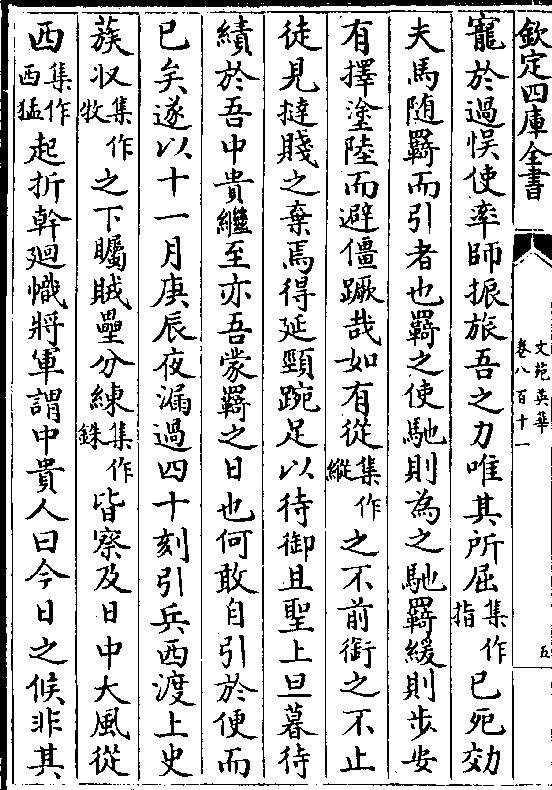 欽定四庫全書
文苑英華
卷八百十一
五
寵於過悞使率師振旅吾之力唯其所屈集作指已死効
夫馬随羇而引者也羇之使馳則為之馳羇緩則步安
有擇塗陸而避僵蹶哉如有從集作縱之不前銜之不止
徒見撻賤之棄焉得延頸踠足以待御且聖上旦暮待
績於吾中貴繼至亦吾蒙羇之日也何敢自引於便而
已矣遂以十一月庚辰夜漏過四十刻引兵西渡上史
蔟収集作牧之下矚賊壘分練集作銖皆察及日中大風從
西集作西猛起折幹廻幟將軍謂中貴人曰今日之候非其